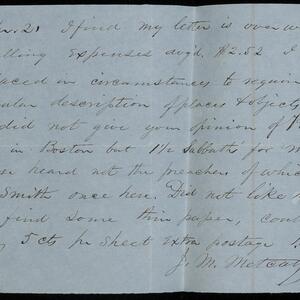 21 I find my letter is over w
lling Expenses avg'd. $2.52 I
laced in circumstances to requir
ular description of places & objec
did not give your opinion of
in Boston but 1½ Sabbath for m
se heard not the preachers of whic
Smith once here. Did not like
find some thin paper, cons
5 cts pr sheet extra postage
J. M. Metcal